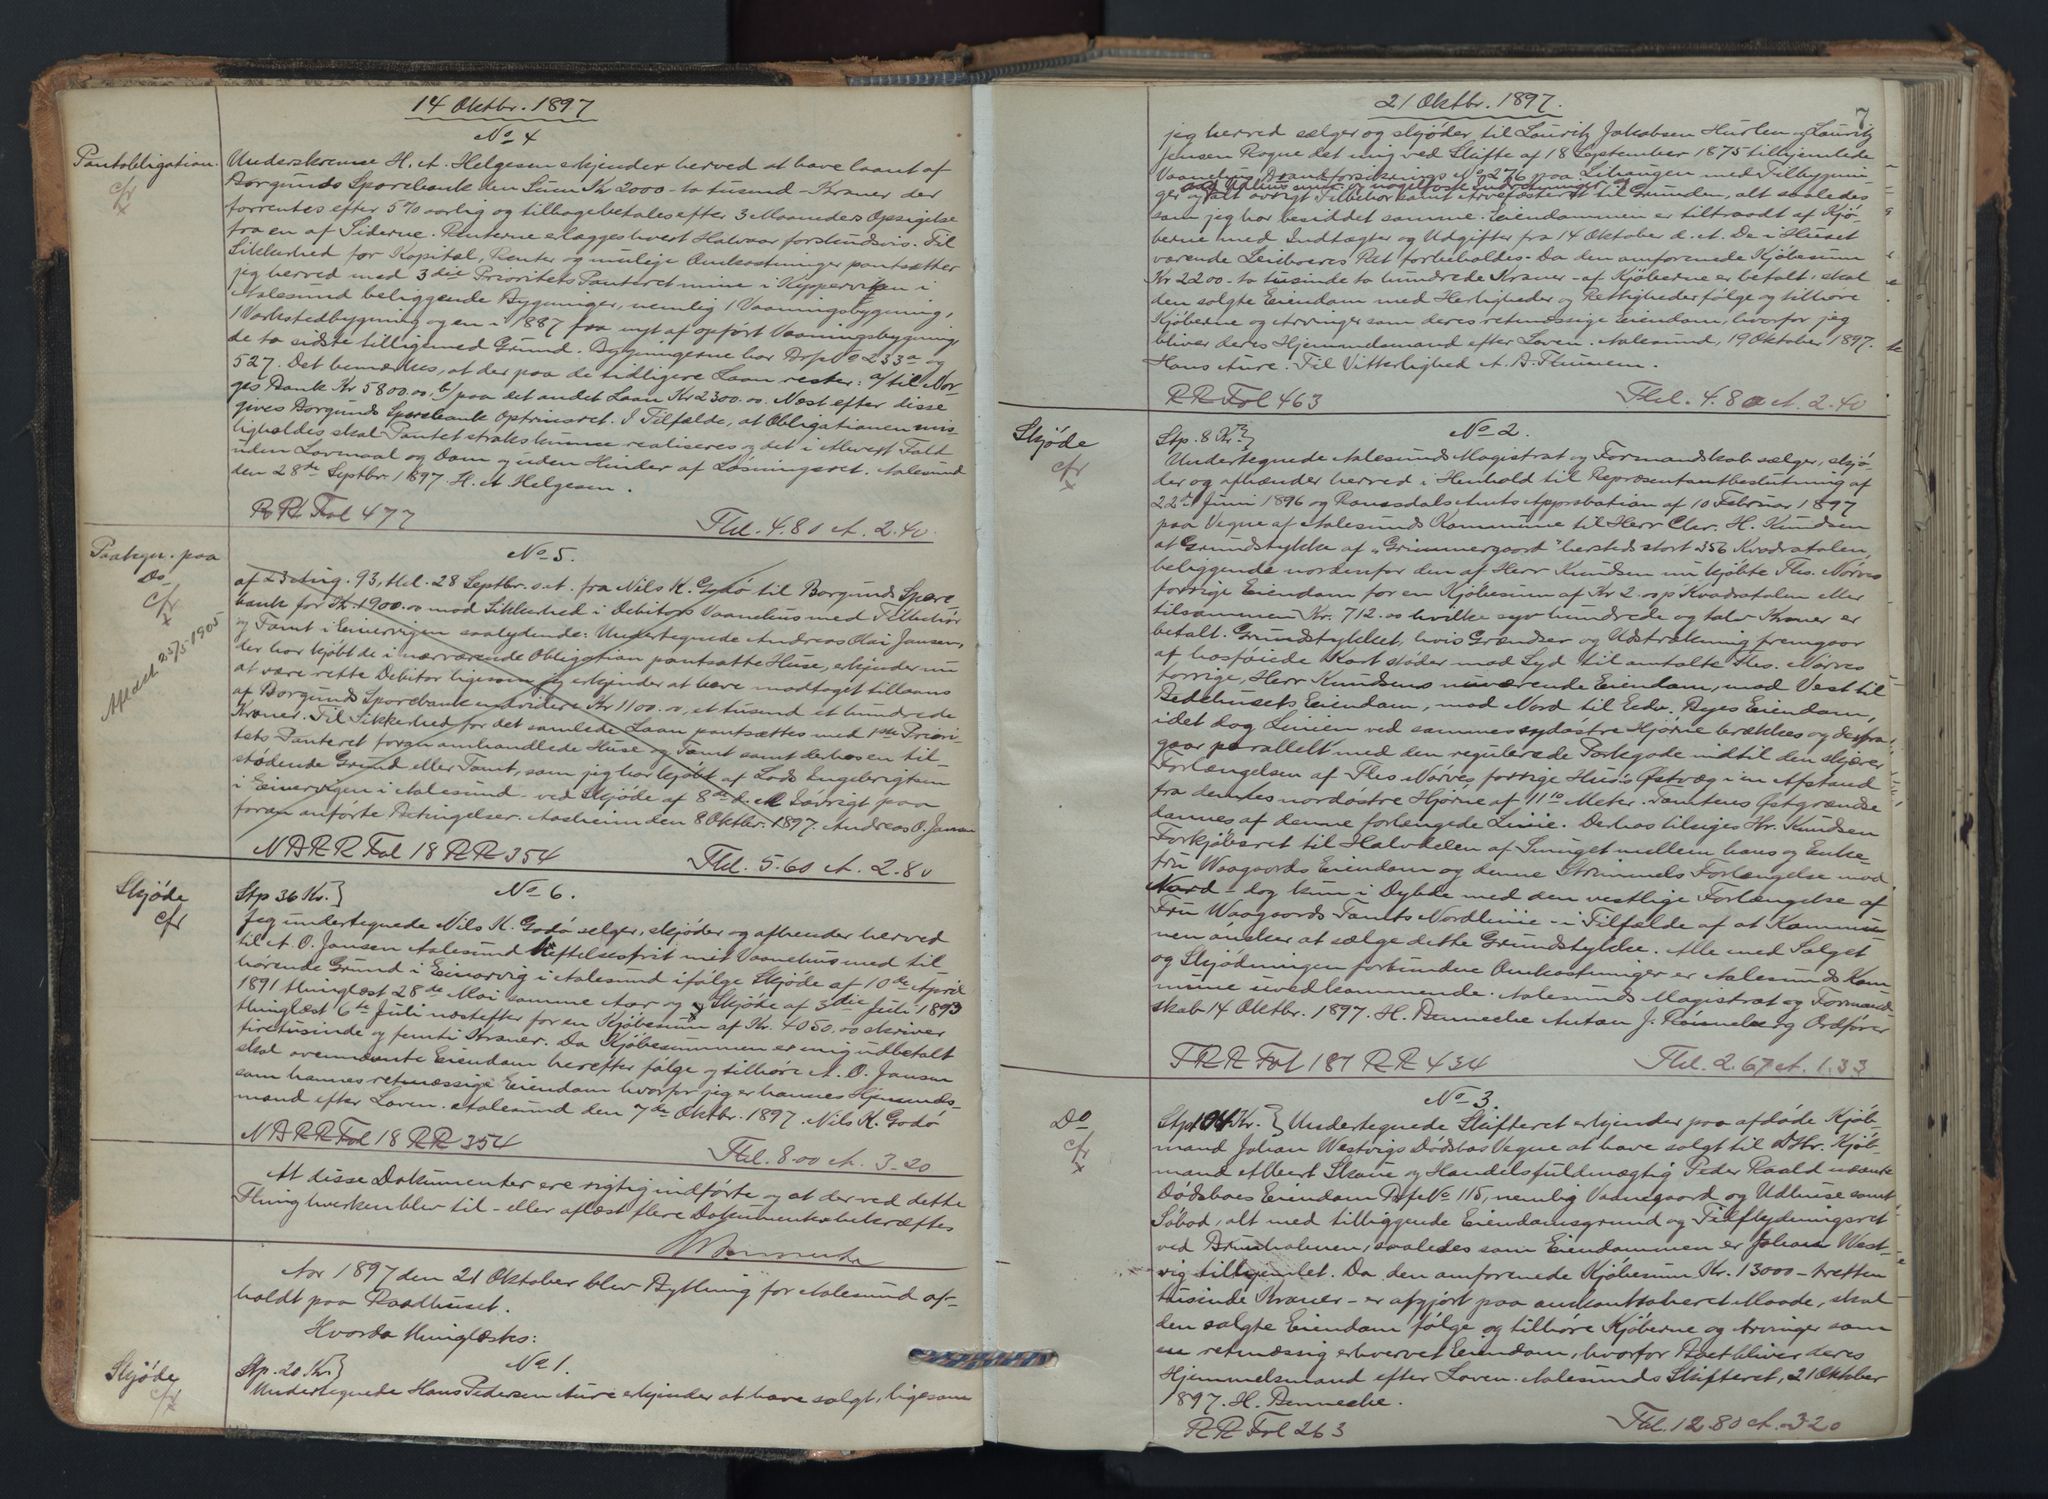 14 Oktbr. 1897
No 4
Pantobligation.
cfr
x
Underskrevne H. A. Helgesen erkjender herved at have laant af
Borgunds Sparebank den Sum Kr 2000 - to tusend - Kroner der
forrentes efter 5 % aarlig og tilbagebetales efter 3 Maaneders Opsigelse
fra en af Siderne. Renterne erlægges hvert Halvaar forskudsvis. Til
Sikkerhed for Kapital, Renter og mulige Omkostninger pantsætter
jeg herved med 3die Prioritets Panteret mine i Kippervigen i
Aalesund beliggende Bygninger, nemlig 1 Vaaningsbygning,
1 Værkstedbygning og en i 1887 fra nyt af opført Vaaningsbygning
de to sidste tilligemed Grund. Bygningerne har Brf No 233a og
527. Det bemærkes, at der paa de tidligere Laan rester: a/ til Nor-
ges Bank Kr 5800.00, b/ paa det andet Laan Kr 2300.00. Næst efter disse
gives Borgunds Sparebank Optrinsret. I Tilfælde, at Obligationen mis-
ligholdes skal Pantet straks kunne realiseres og det i Ethvert Fald
uden Lovmaal og Dom og uden Hinder af Løsningsret. Aalesund
den 28de Septbr. 1897. H. A. Helgesen.
RR Fol 477 Thl. 4.80 A. 2.40.
Paategn. paa
Do
cfr
x
Aflæst 25/5 1905
No 5.
af 23 Aug. 93, thl. 28 Septbr. s.A. fra Nils K. Godø til Borgunds Spare
bank for Kr. 1900.00 mod Sikkerhed i Debitors Vaanehus med Tilbehør
og Tomt i Einervigen saalydende: Undertegnede Andreas Olai Jansen,
der har kjøbt de i nærværende Obligation pantsatte Huse, erkjender nu
at være rette Debitor ligesom jeg erkjender at have modtaget tillaans
af Borgunds Sparebank endvidere Kr 1100.00, et tusend et hundrede
Kroner. Til Sikkerhed for det samlede Laan pantsættes med 1ste Priori-
tets Panteret foran omhandlede Huse og Tomt samt derhos en til-
stødende Grund eller Tomt, som jeg har kjøbt af Lods Engebrigtsen
i Einervigen i Aalesund ved Skjøde af 8de d. M. Iøvrigt paa
foran anførte Betingelser. Aasheim den 8 Oktbr. 1897. Andreas O. Jansen
NBRR Fol 18 RR 354 Thl. 5.60 A. 2.80
Skjøde
cfr
Stp 36 Kr.} No 6.
Jeg undertegnede Nils K. Godø selger, skjøder og afhender herved
til A. O. Jansen Aalesund Heftelsesfrit mit Vaanehus med til
hørende Grund i Einervig i Aalesund ifølge Skjøde af 10de April
1891 thinglæst 28de Mai samme Aar og Skjøde af 3die Juli 1893
thinglæst 6te Juli næstefter for en Kjøbesum af Kr. 4050.00 skriver
firetusinde og femti Kroner. Da Kjøbesummen er mig udbetalt
skal ovennævnte Eiendom herefter følge og tilhøre A. O. Jansen
som hannes retmæssige Eiendom hvorfor jeg er hannes Hjemmels-
mand efter Loven. Aalesund den 7de Oktbr. 1897. Nils K. Godø
NBRR Fol 18 RR 354 Thl. 8.00 A. 3.20
At disse Dokumenter ere rigtig indførte og at der ved dette
Thing hverken blev til - eller aflæst flere Dokumenter bekræftes
Aar 1897 den 21 Oktober blev Bything for Aalesund af-
holdt paa Raadhuset.
Hvorda thinglæstes:
Skjøde
cfr
x
Stp. 20 Kr} No 1.
Undertegnede Hans Pedersen Aure erkjender at have solgt, ligesom
21 Oktbr. 1897.
7
jeg herved sælger og skjøder til Lauritz Jakobsen Hurlen og Lauritz
Jensen Rogne det mig ved Skifte af 18 September 1875 tilhjemlede
Vaanehus Brandforsikrings No 276 paa Lihaugen med Tilbygnin-
ger og alt øvrigt Tilbehør samt Arvefæsteret til Grunden, alt saaledes
som jeg har besiddet samme. Eiendommen er tiltraadt af Kjø-
berne med Indtægter og Udgifter fra 14 Oktober d. A. De i Huset
værende Leieboeres Ret forbeholdes. Da den omforenede Kjøbesum
Kr 2200 - to tusinde to hundrede Kroner - af Kjøberne er betalt, skal
den solgte Eiendom med Herligheder og Rettigheder følge og tilhøre
Kjøberne og Arvinger som deres retmæssige Eiendom, hvorfor jeg
bliver deres Hjemmelsmand efter Loven. Aalesund, 19 Oktober 1897.
Hans Aure. Til Vitterlighed A. B. Thunem.
RR Fol 463 Thl. 4.80 A. 2.40
Skjøde
cfr
x
Stp. 8 Kr.} No 2.
Undertegnede Aalesunds Magistrat og Formandskab sælger, skjø-
der og afhænder herved i Henhold til Repræsentantbeslutning af
22de Juni 1896 og Romsdals Amts Approbation af 10 Februar 1897
paa Vegne af Aalesunds Kommune til Herr Chr. H. Knudsen
at Grundstykke af "Grimmergaard" hersteds stort 356 Kvadratalen,
beliggende nordenfor den af Herr Knudsen nu kjøbte Ths. Nørves
forrige Eiendom for en Kjøbesum af Kr 2.00 p Kvadratalen eller
tilsammen Kr. 712.00 hvilke syv hundrede og tolv Kroner er
betalt. Grundstykket, hvis Grændser og Udstrækning fremgaar
af hosføiede Kart støder mod Syd til omtalte Ths. Nørves
forrige, Herr Knudsens nuværende Eiendom, mod Vest til
Bedehusets Eiendom, mod Nord til Edv. Ryes Eiendom,
idet dog Linien ved sammes sydøstre Hjørne brækkes og derfra
gaar parallelt med den regulerede Parkgade indtil den skjærer
Forlængelsen af Ths Nørves forrige Hus's Østvæg i en Afstand
fra dennes nordøstre Hjørne af 11.10 Meter. Tomtens Østgrændse
dannes af denne forlængede Linie. Derhos tilsiges Hr. Knudsen
Forkjøbsret til Halvdelen af Smuget mellem hans og Enke-
fru Waagaards Eiendom og denne Strimmels Forlængelse mod
Nord - dog kun i Dybde med den vestlige Forlængelse af
Fru Waagaards Tomts Nordlinie - i Tilfælde af at Kommu-
nen ønsker at sælge dette Grundstykke. Alle med Salget
og Skjødningen forbundne Omkostninger er Aalesunds Kom-
mune uvedkommende. Aalesunds Magistrat og Formand-
skab 14 Oktbr. 1897. H. Benneche Anton J. Rønneberg Ordfører
TRR Fol 181 RR 434 Thl. 2.67 A. 1.33
Do
cfr
x
No 3
Stp 104 Kr.} Undertegnede Skifteret erkjender paa afdøde Kjøb-
mand Johan Westvigs Dødsbos Vegne at have solgt til DHr. Kjøb-
mand Albert Skaue og Handelsfuldmægtig Peder Raald nævnte
Dødsboes Eiendom Brf No 115, nemlig Vaanegaard og Udhuse samt
Søbod, alt med tilliggende Eiendomsgrund og Tilflydningsret
ved Brunholmen, saaledes som Eiendommen er Johan West-
vig tilhjemlet. Da den omforenede Kjøbesum Kr. 13000 - tretten
tusinde Kroner - er afgjort paa omkontraheret Maade, skal
den solgte Eiendom følge og tilhøre Kjøberne og Arvinger som
en retmæssig erhvervet Eiendom, hvorfor Boet bliver deres
Hjemmelsmand efter Loven. Aalesunds Skifteret, 21 Oktober
1897. H. Benneche.
RR Fol 263 Thl. 12.80 A. 3.20